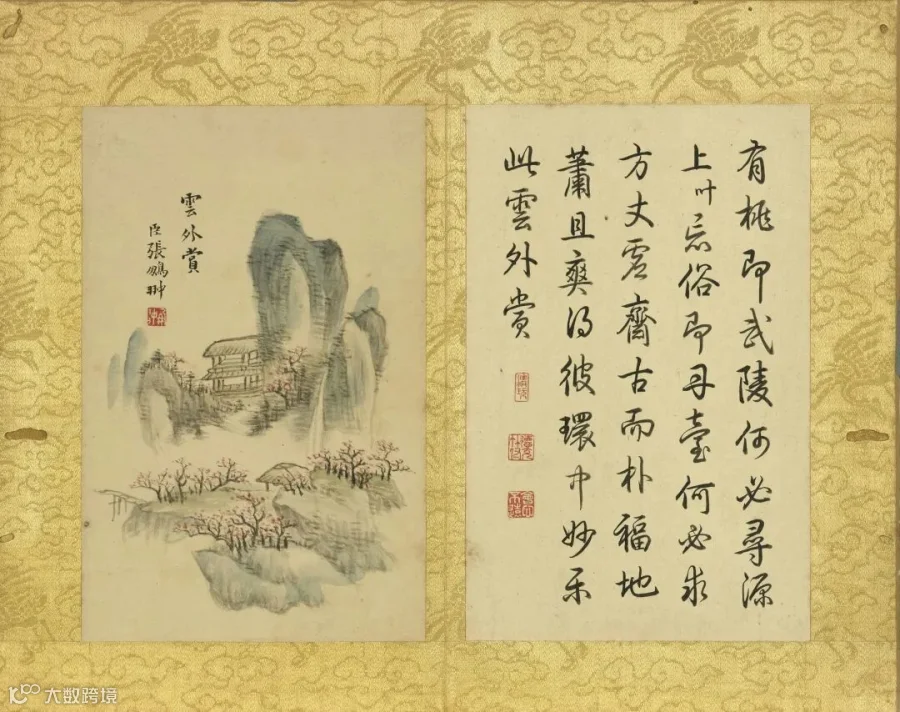 有桃即武陵何必尋源
上叶忘俗即丹臺何必求
方丈虛齋古而朴福地
蕭且爽得彼環中妙乐
此雲外賞
雲外賞
臣張鵬翀
大数跨境